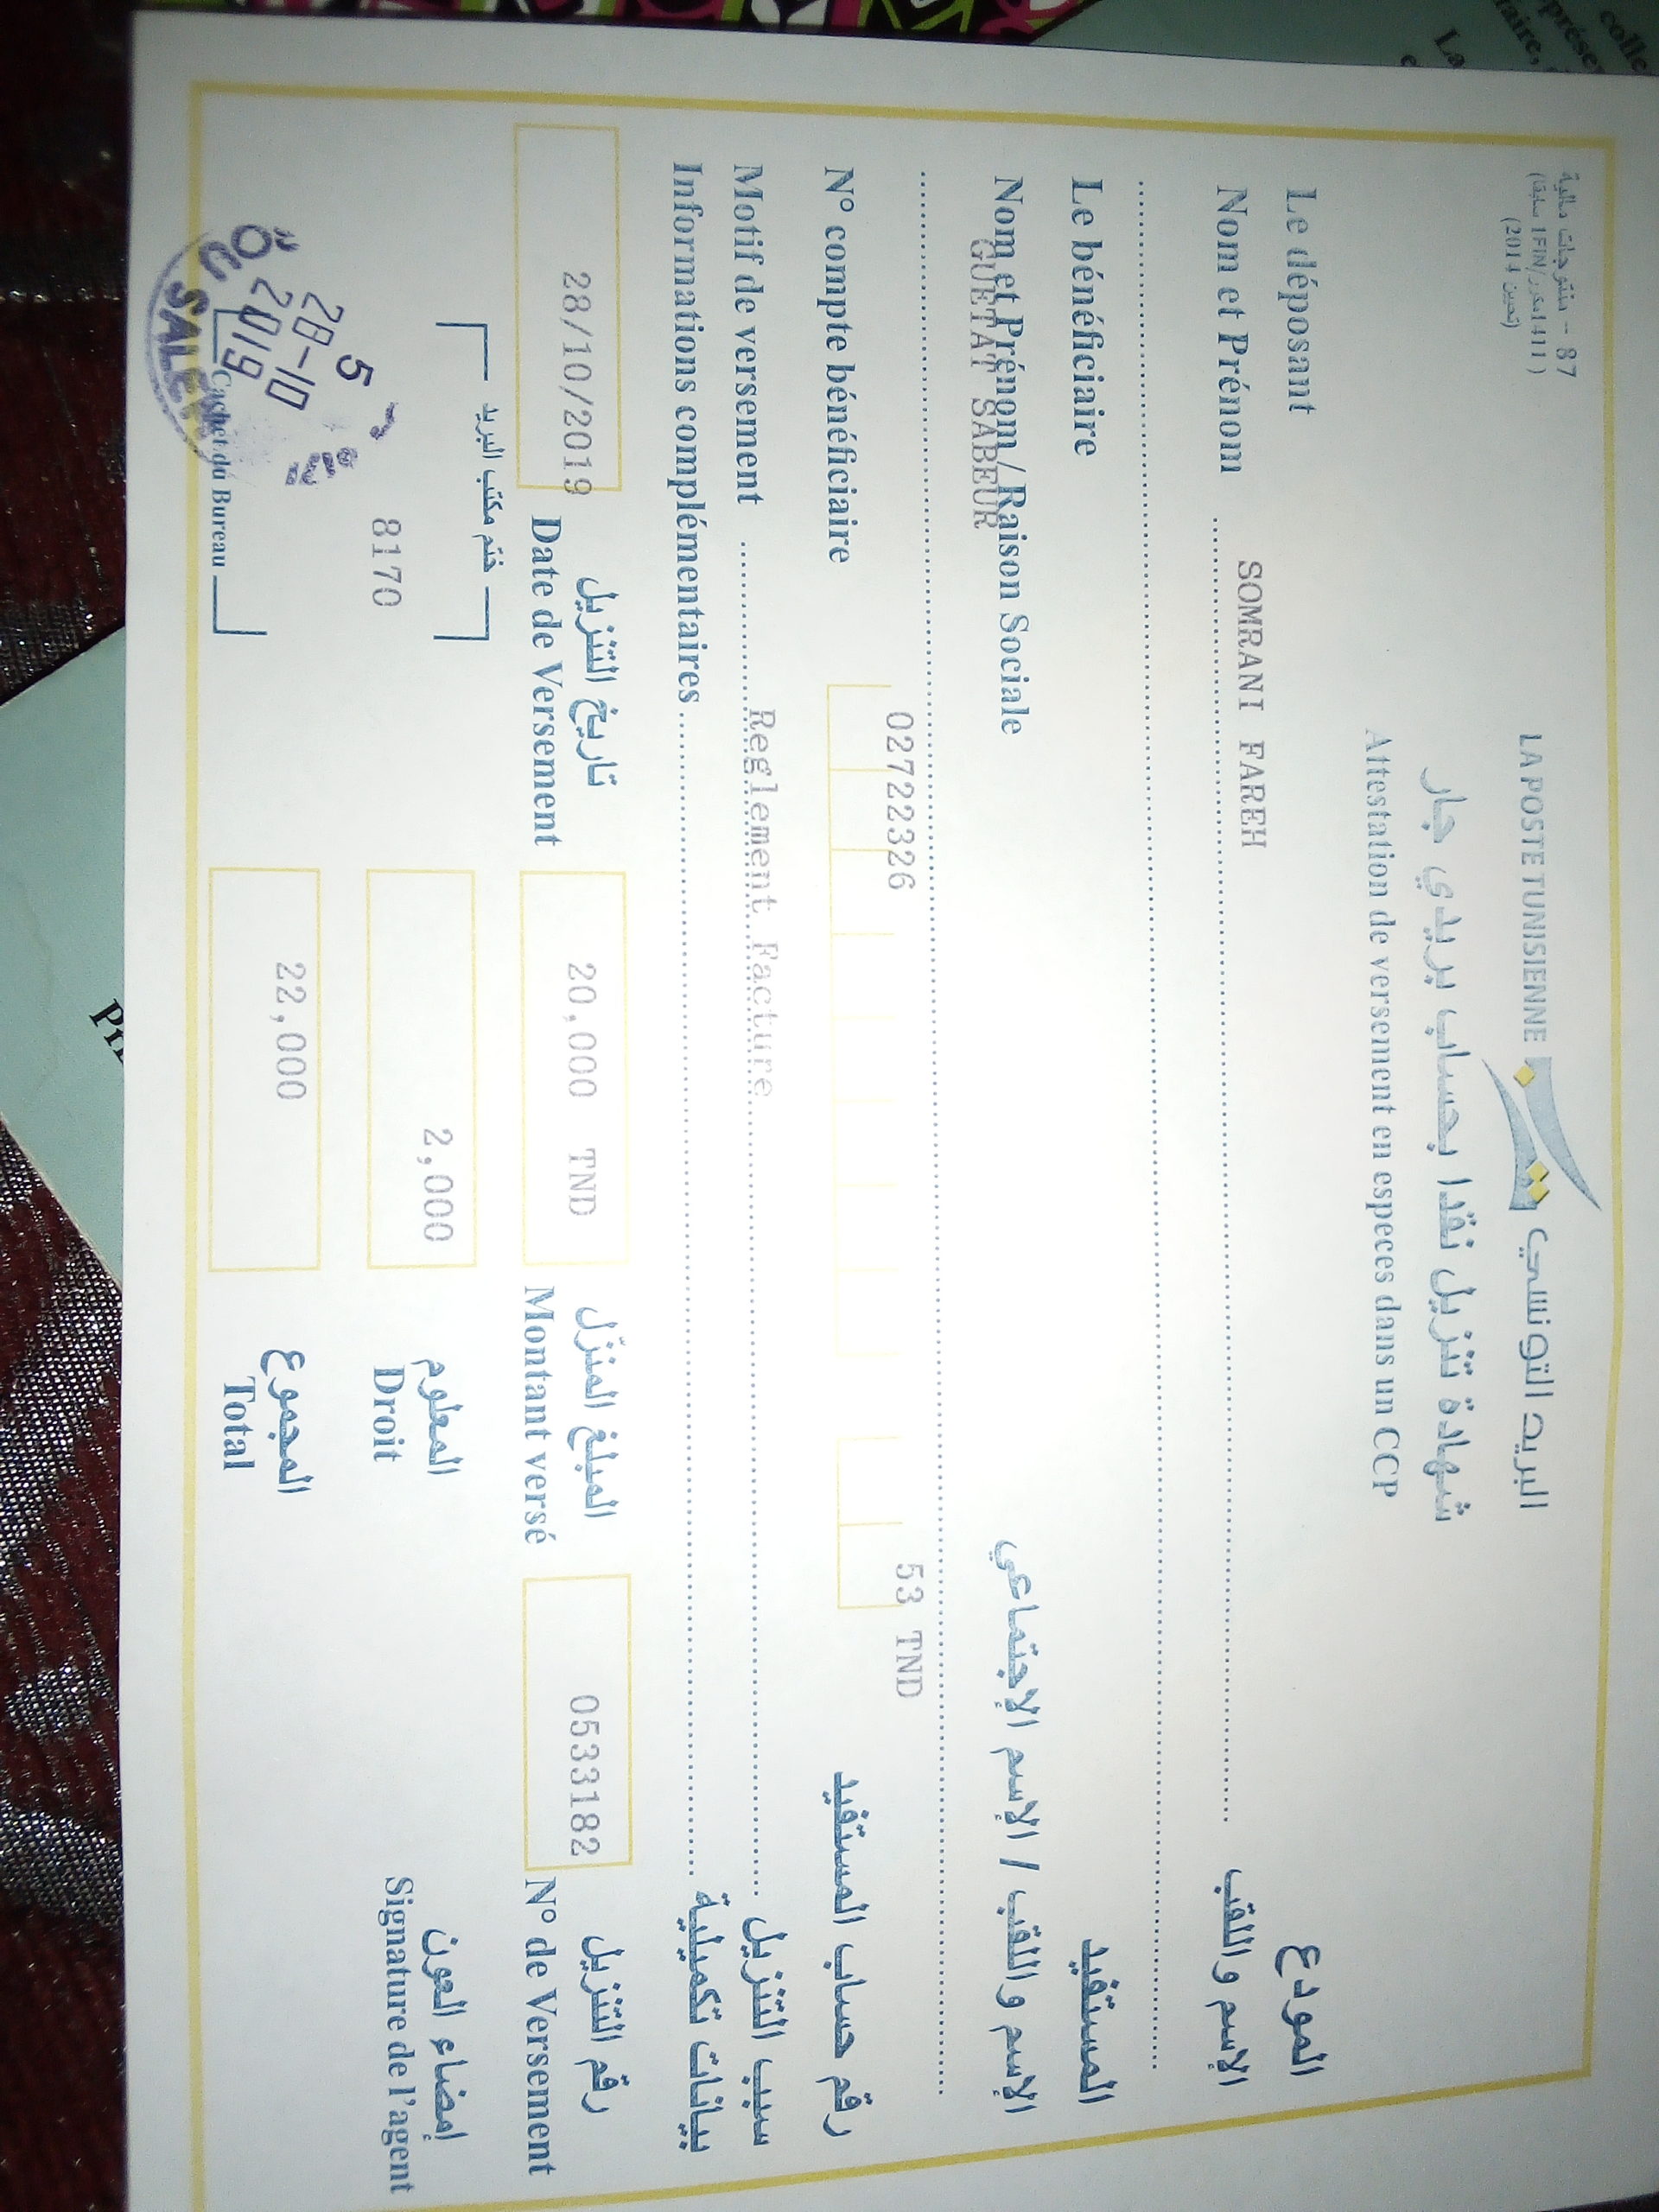 87 - منتوجات مالية
(1411مكرر/1FIN سابقا)
(تحيين 2014)
LA POSTE TUNISIENNE البريد التونسي
شهادة تنزيل نقدا بحساب بريدي جار
Attestation de versement en especes dans un CCP
Le déposant المودع
Nom et Prénom SOMRANI FAREH الإسم واللقب
Le bénéficiaire المستفيد
Nom et Prénom / Raison Sociale الإسم واللقب / الإسم الإجتماعي
GUETAT SABEUR
N° compte bénéficiaire 02722326 53 TND رقم حساب المستفيد
Motif de versement Reglement Facture سبب التنزيل
Informations complémentaires بيانات تكميلية
28/10/2019 تاريخ التنزيل 20,000 TND المبلغ المنزّل 0533182 رقم التنزيل
Date de Versement Montant versé N° de Versement
ختم مكتب البريد 2,000 المعلوم إمضاء العون
8170 Droit Signature de l'agent
5
28-10
2019
SALE
Cachet du Bureau
22,000 المجموع
Total
colle
La